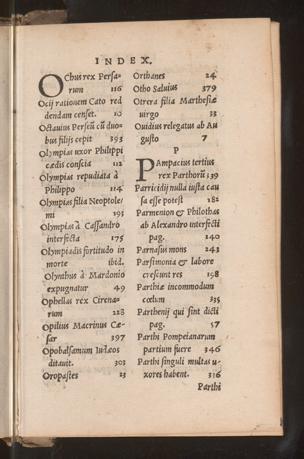 INDEX.
OChus rex Persa-
rum 116
Ocij rationem Cato red
dendam censet. 10
Octauius Perseũ cũ duo-
bus filijs cepit 393
Olympias uxor Philippi
cædis conscia 112
Olympias repudiata à
Philippo 114
Olympias filia Neoptole-
mi 193
Olympias à Cassandro
interfecta 175
Olympiadis fortitudo in
morte ibid.
Olynthus à Mardonio
expugnatur 49
Ophellas rex Cirena-
rum 228
Opilius Macrinus Cæ-
sar 397
Opobalsamum Iudæos
ditauit. 303
Oropastes 23
Orthanes 24
Otho Saluius 379
Otrera filia Marthesiæ
uirgo 33
Ouidius relegatus ab Au
gusto 7
P
PAmpacius tertius
rex Parthorũ 339
Parricidij nulla iusta cau
sa esse potest 182
Parmenion & Philothas
ab Alexandro interfecti
pag. 140
Parnasus mons 243
Parsimonia & labore
crescunt res 198
Parthiæ incommodum
cœlum 335
Parthenij qui sint dicti
pag. 57
Parthi Pompeianarum
partium fuere 346
Parthi singuli multas u-
xores habent. 336
Parthi